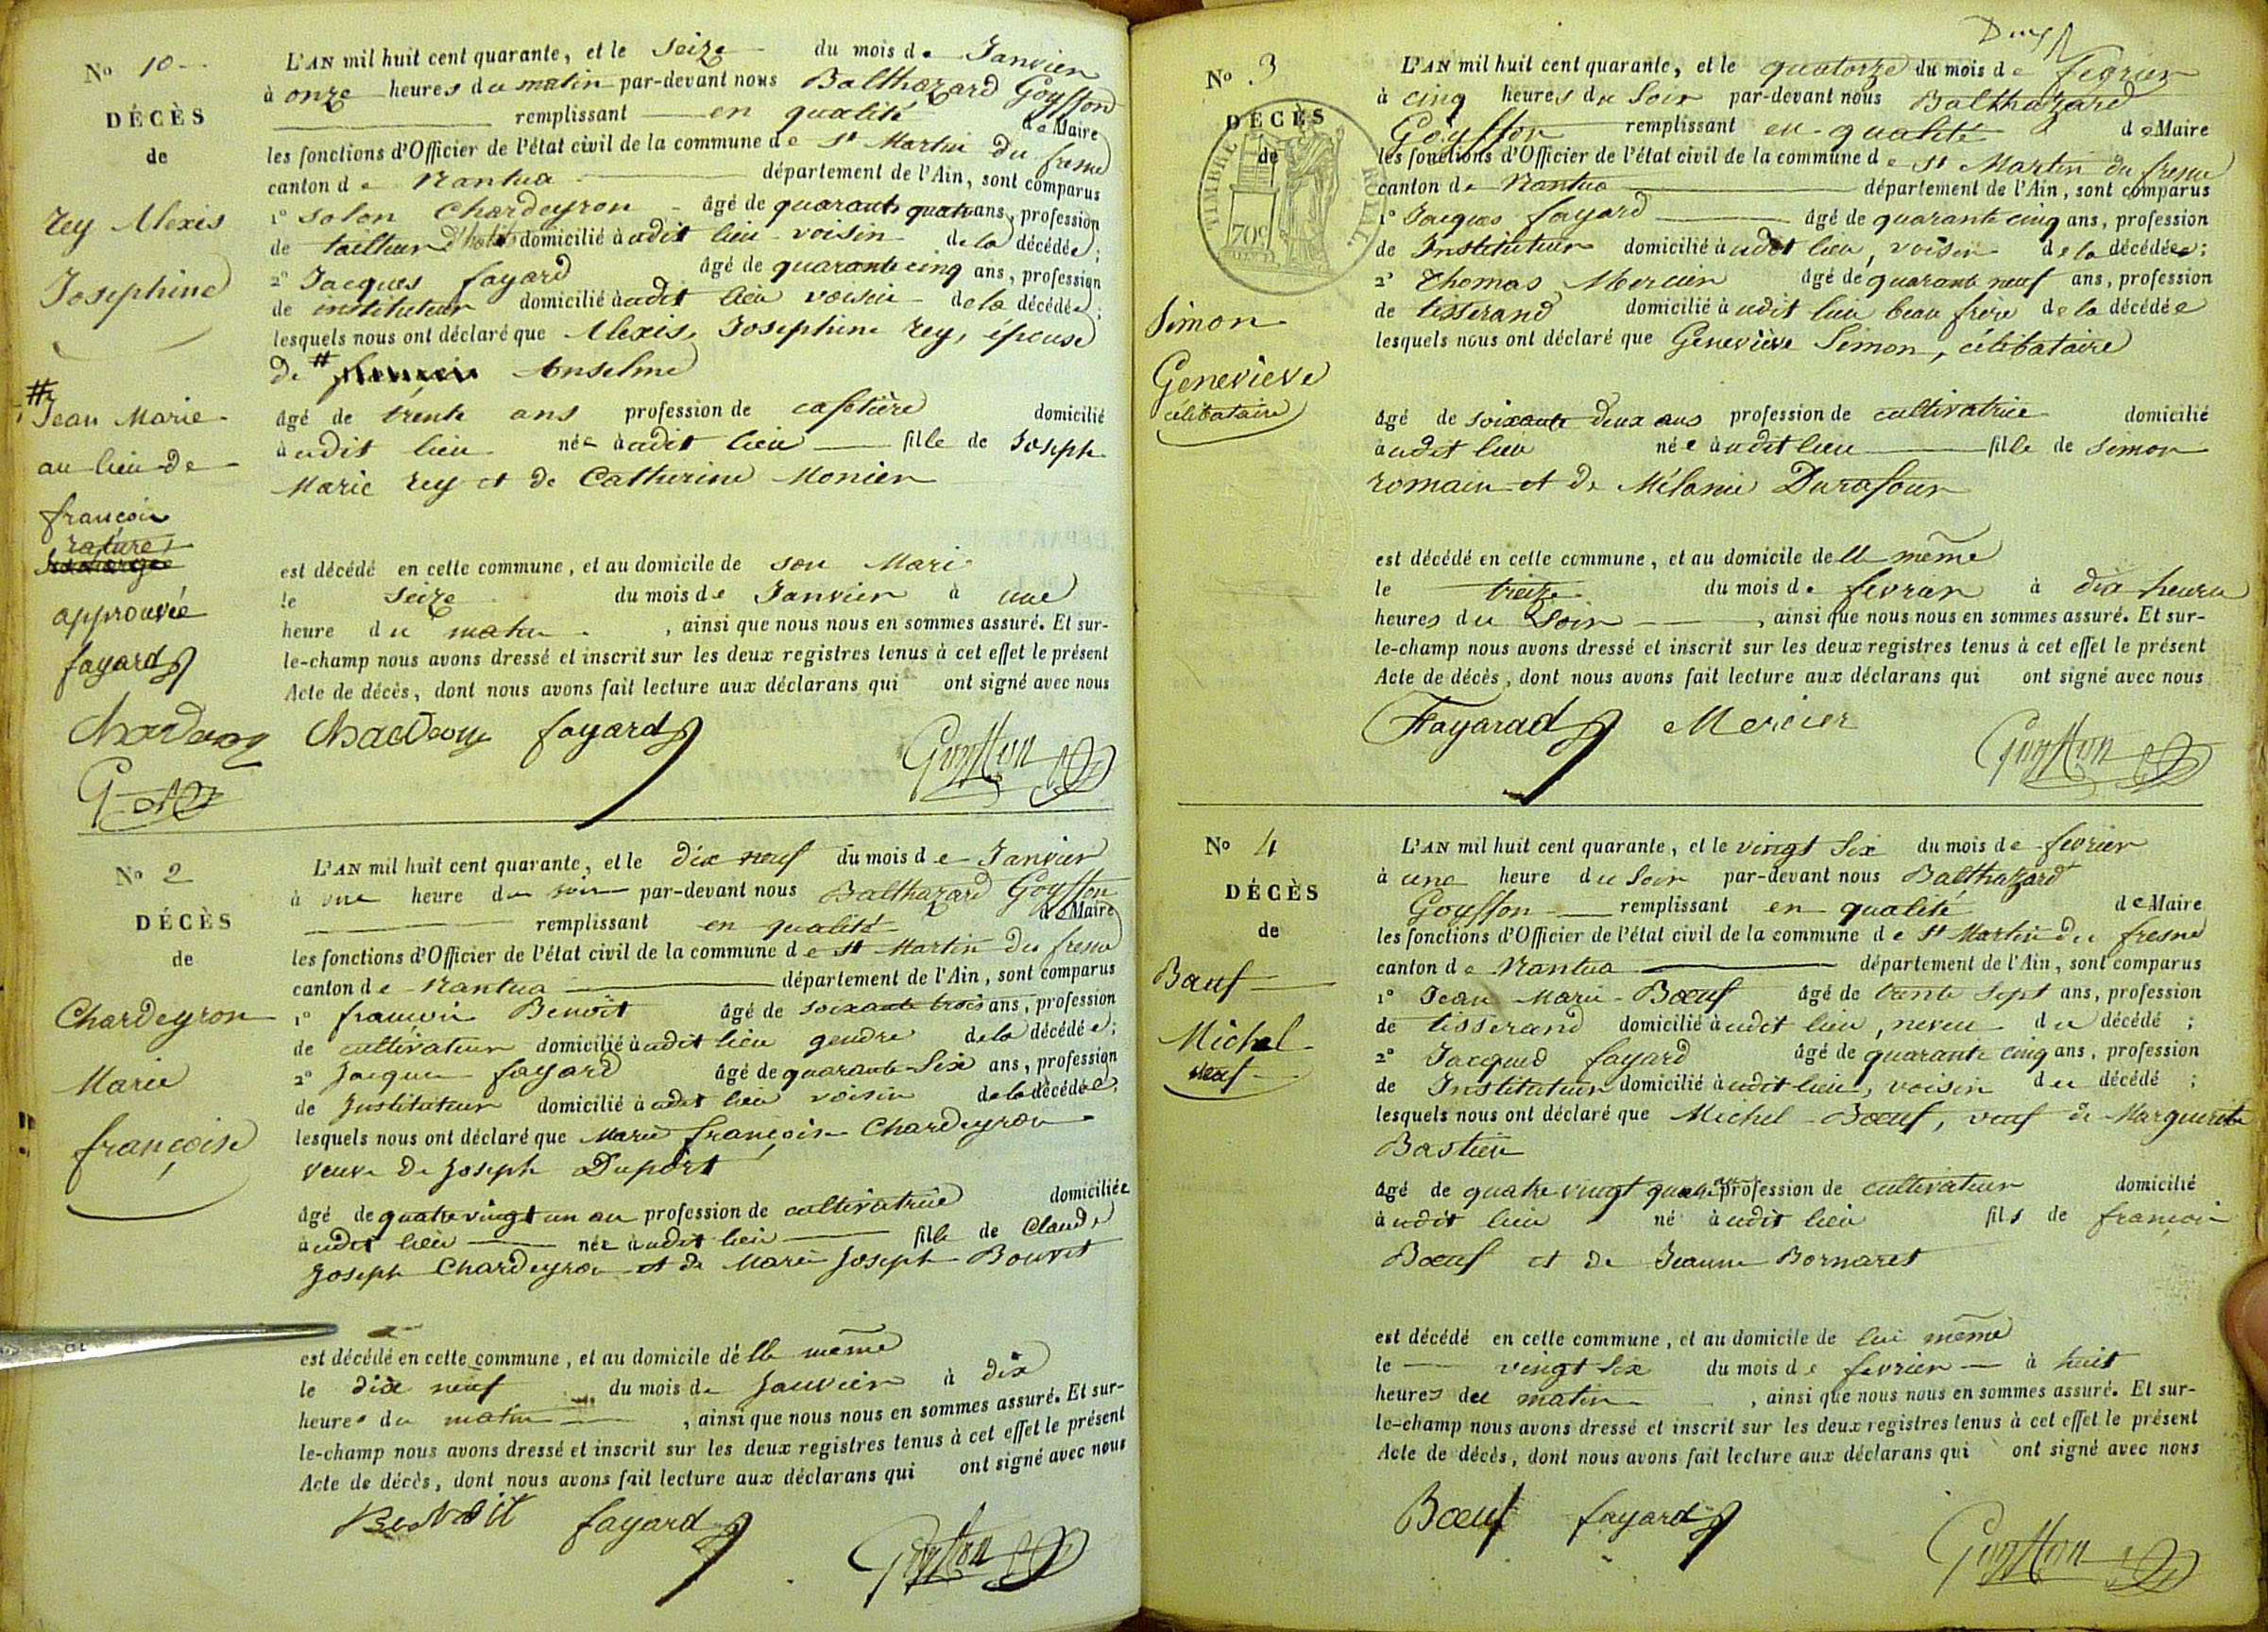 N° 10
DÉCÈS
de
rey Alexis
Josephine
# Jean Marie
au lieu de
françois
rature
approuvée
fayard
L'AN mil huit cent quarante, et le seize du mois de Janvier
à onze heures du matin par-devant nous Balthazard Goyffon
remplissant en qualité de Maire
les fonctions d'Officier de l'état civil de la commune de St Martin du fresne
canton de Nantua département de l'Ain, sont comparus
1° Solon Chardeyron âgé de quarante quatre ans, profession
de tailleur d'habits domicilié à udit lieu voisin de la décédée;
2° Jacques fayard âgé de quarante cinq ans, profession
de instituteur domicilié à udit lieu voisin de la décédée;
lesquels nous ont déclaré que Alexis, Josephine rey, épouse
de # Anselme
âgé de trente ans profession de cafetière domicilié
à udit lieu née à udit lieu fille de Joseph
Marie rey et de Catherine Monier
est décédé en cette commune, et au domicile de son Mari
le seize du mois de Janvier à une
heure du matin, ainsi que nous nous en sommes assuré. Et sur-
le-champ nous avons dressé et inscrit sur les deux registres tenus à cet effet le présent
Acte de décès, dont nous avons fait lecture aux déclarans qui ont signé avec nous
fayard Goyffon
N° 2
DÉCÈS
de
Chardeyron
Marie
françoise
L'AN mil huit cent quarante, et le dix neuf du mois de Janvier
à une heure du soir par-devant nous Balthazard Goyffon
remplissant en qualité de Maire
les fonctions d'Officier de l'état civil de la commune de St Martin du fresne
canton de Nantua département de l'Ain, sont comparus
1° françois Benoît âgé de soixante trois ans, profession
de cultivateur domicilié à udit lieu gendre de la décédée;
2° Jacques fayard âgé de quarante Six ans, profession
de Instituteur domicilié à udit lieu voisin de la décédée;
lesquels nous ont déclaré que Marie françoise Chardeyron
veuve de Joseph Duport
âgé de quatre vingt un an profession de cultivatrice domiciliée
à udit lieu née à udit lieu fille de Claude
Joseph Chardeyron et de Marie Joseph Bouvet
est décédé en cette commune, et au domicile d'elle même
le dix neuf du mois de Janvier à dix
heures du matin, ainsi que nous nous en sommes assuré. Et sur-
le-champ nous avons dressé et inscrit sur les deux registres tenus à cet effet le présent
Acte de décès, dont nous avons fait lecture aux déclarans qui ont signé avec nous
Benoit fayard Goyffon
N° 3
DÉCÈS
de
TIMBRE ROYAL
70c
Simon
Genevieve
célibataire
L'AN mil huit cent quarante, et le quatorze du mois de fevrier
à cinq heures du Soir par-devant nous Balthazard
Goyffon remplissant en qualité de Maire
les fonctions d'Officier de l'état civil de la commune de St Martin du fresne
canton de Nantua département de l'Ain, sont comparus
1° Jacques fayard âgé de quarante cinq ans, profession
de Instituteur domicilié à udit lieu, voisin de la décédée;
2° Thomas Mercier âgé de quarante neuf ans, profession
de tisserand domicilié à udit lieu beau frère de la décédée
lesquels nous ont déclaré que Geneviève Simon, célibataire
âgé de soixante deux ans profession de cultivatrice domicilié
à udit lieu née à udit lieu fille de Simon
romain et de Mélanie Durafour
est décédé en cette commune, et au domicile d'elle même
le treize du mois de fevrier à dix heures
heures du Soir, ainsi que nous nous en sommes assuré. Et sur-
le-champ nous avons dressé et inscrit sur les deux registres tenus à cet effet le présent
Acte de décès, dont nous avons fait lecture aux déclarans qui ont signé avec nous
Fayarad Mercier Goyffon
N° 4
DÉCÈS
de
Bœuf
Michel
veuf
L'AN mil huit cent quarante, et le vingt Six du mois de fevrier
à une heure du Soir par-devant nous Balthazard
Goyffon remplissant en qualité de Maire
les fonctions d'Officier de l'état civil de la commune de St Martin du fresne
canton de Nantua département de l'Ain, sont comparus
1° Jean Marie Bœuf âgé de trente Sept ans, profession
de tisserand domicilié à udit lieu, neveu du décédé;
2° Jacques fayard âgé de quarante cinq ans, profession
de Instituteur domicilié à udit lieu, voisin du décédé;
lesquels nous ont déclaré que Michel Bœuf, veuf de Marguerite
Bastien
âgé de quatre vingt quatre ans profession de cultivateur domicilié
à udit lieu né à udit lieu fils de françois
Bœuf et de Jeanne Bornaret
est décédé en cette commune, et au domicile de lui même
le vingt Six du mois de fevrier à huit
heures du matin, ainsi que nous nous en sommes assuré. Et sur-
le-champ nous avons dressé et inscrit sur les deux registres tenus à cet effet le présent
Acte de décès, dont nous avons fait lecture aux déclarans qui ont signé avec nous
Bœuf fayard Goyffon